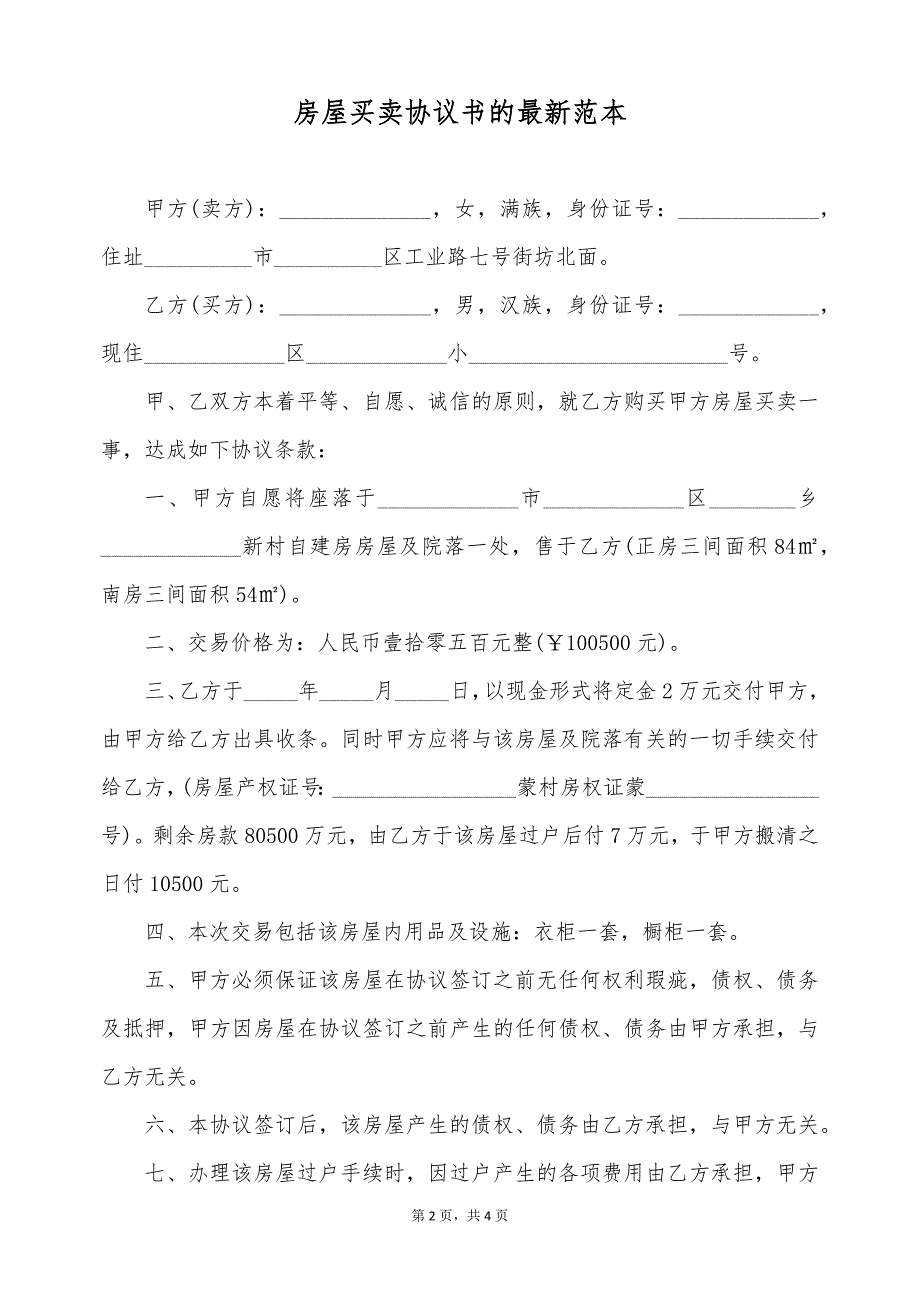 房屋买卖协议书的最新范本
甲方(卖方)：______________，女，满族，身份证号：_____________，
住址__________市__________区工业路七号街坊北面。
乙方(买方)：______________，男，汉族，身份证号：_____________，
现住_____________区_____________小________________________号。
甲、乙双方本着平等、自愿、诚信的原则，就乙方购买甲方房屋买卖一
事，达成如下协议条款：
一、甲方自愿将座落于_____________市_____________区________乡
_____________新村自建房房屋及院落一处，售于乙方(正房三间面积84㎡，
南房三间面积54㎡)。
二、交易价格为：人民币壹拾零五百元整(￥100500元)。
三、乙方于_____年_____月_____日，以现金形式将定金2万元交付甲方，
由甲方给乙方出具收条。同时甲方应将与该房屋及院落有关的一切手续交付
给乙方，(房屋产权证号：_________________蒙村房权证蒙________________
号)。剩余房款80500万元，由乙方于该房屋过户后付7万元，于甲方搬清之
日付10500元。
四、本次交易包括该房屋内用品及设施：衣柜一套，橱柜一套。
五、甲方必须保证该房屋在协议签订之前无任何权利瑕疵，债权、债务
及抵押，甲方因房屋在协议签订之前产生的任何债权、债务由甲方承担，与
乙方无关。
六、本协议签订后，该房屋产生的债权、债务由乙方承担，与甲方无关。
七、办理该房屋过户手续时，因过户产生的各项费用由乙方承担，甲方
第2页，共4页